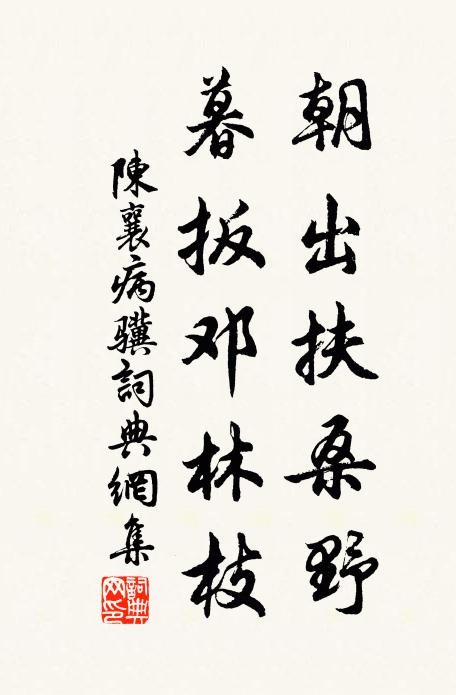 朝出扶桑野
暮扳邓林枝
陳襄病骥詞典網集
詞典网印